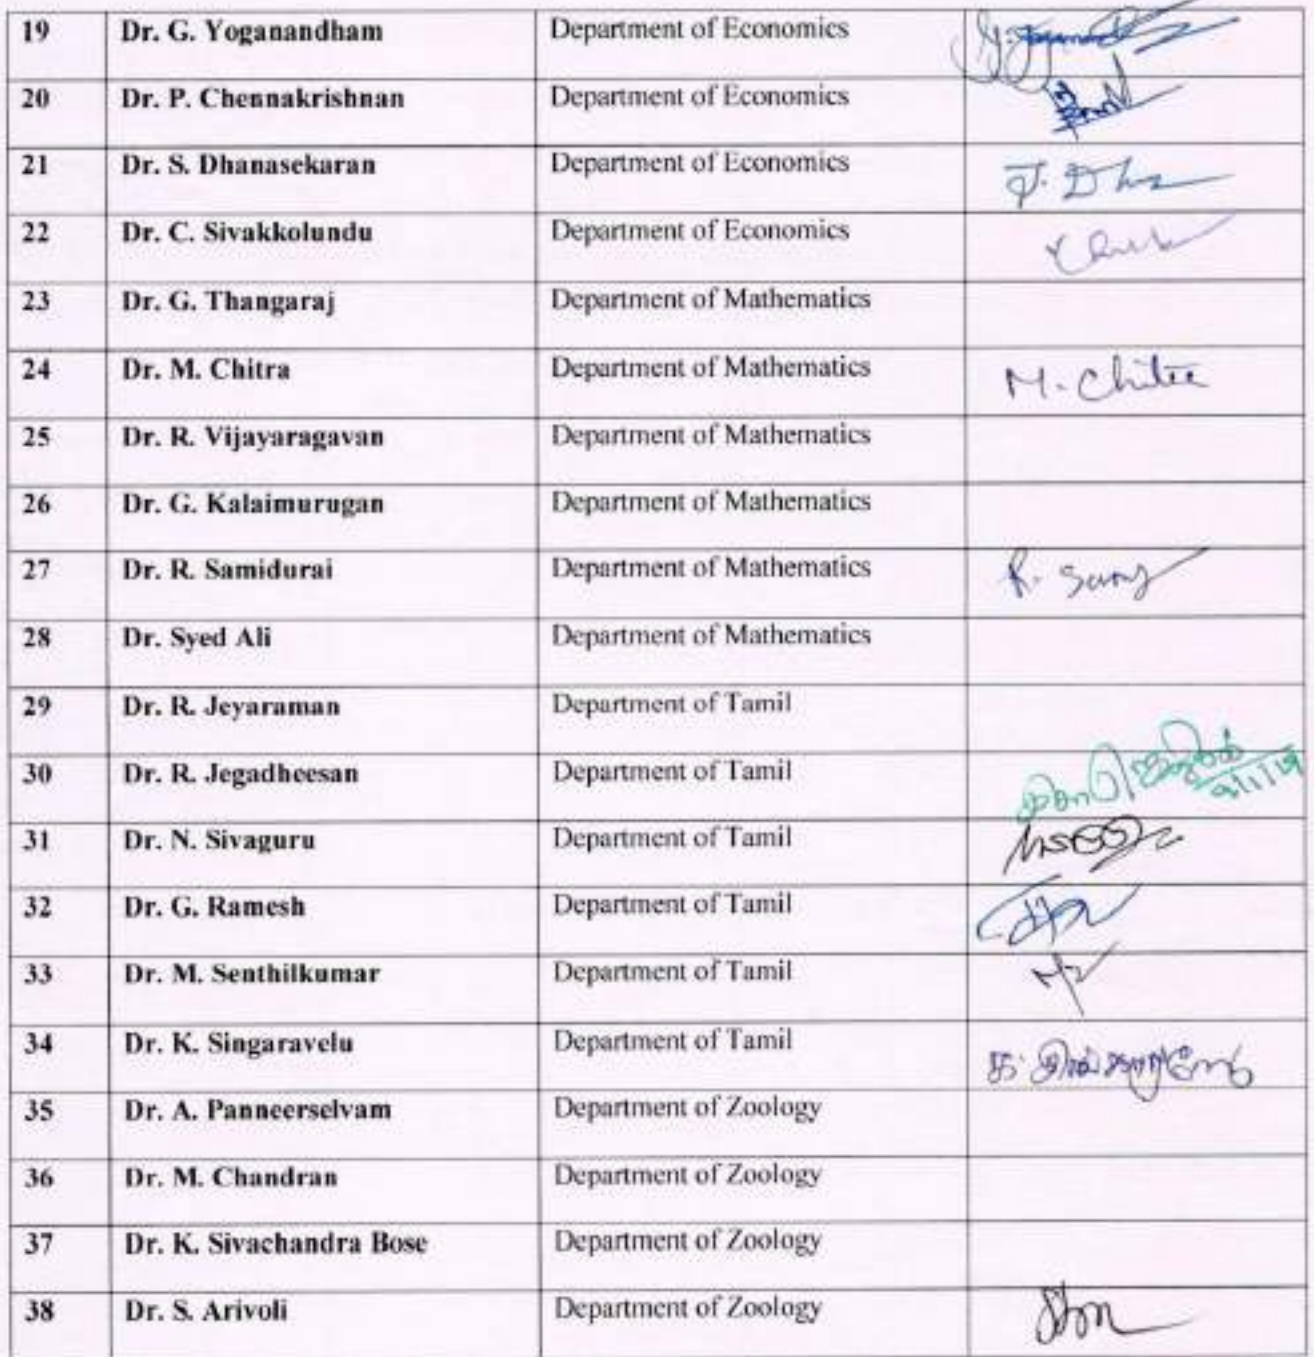 19 Dr. G. Yoganandham Department of Economics
20 Dr. P. Chennakrishnan Department of Economics
21 Dr. S. Dhanasekaran Department of Economics
22 Dr. C. Sivakkolundu Department of Economics
23 Dr. G. Thangaraj Department of Mathematics
24 Dr. M. Chitra Department of Mathematics M. Chitra
25 Dr. R. Vijayaragavan Department of Mathematics
26 Dr. G. Kalaimurugan Department of Mathematics
27 Dr. R. Samidurai Department of Mathematics
28 Dr. Syed Ali Department of Mathematics
29 Dr. R. Jeyaraman Department of Tamil
30 Dr. R. Jegadheesan Department of Tamil
31 Dr. N. Sivaguru Department of Tamil
32 Dr. G. Ramesh Department of Tamil
33 Dr. M. Senthilkumar Department of Tamil
34 Dr. K. Singaravelu Department of Tamil
35 Dr. A. Panneerselvam Department of Zoology
36 Dr. M. Chandran Department of Zoology
37 Dr. K. Sivachandra Bose Department of Zoology
38 Dr. S. Arivoli Department of Zoology